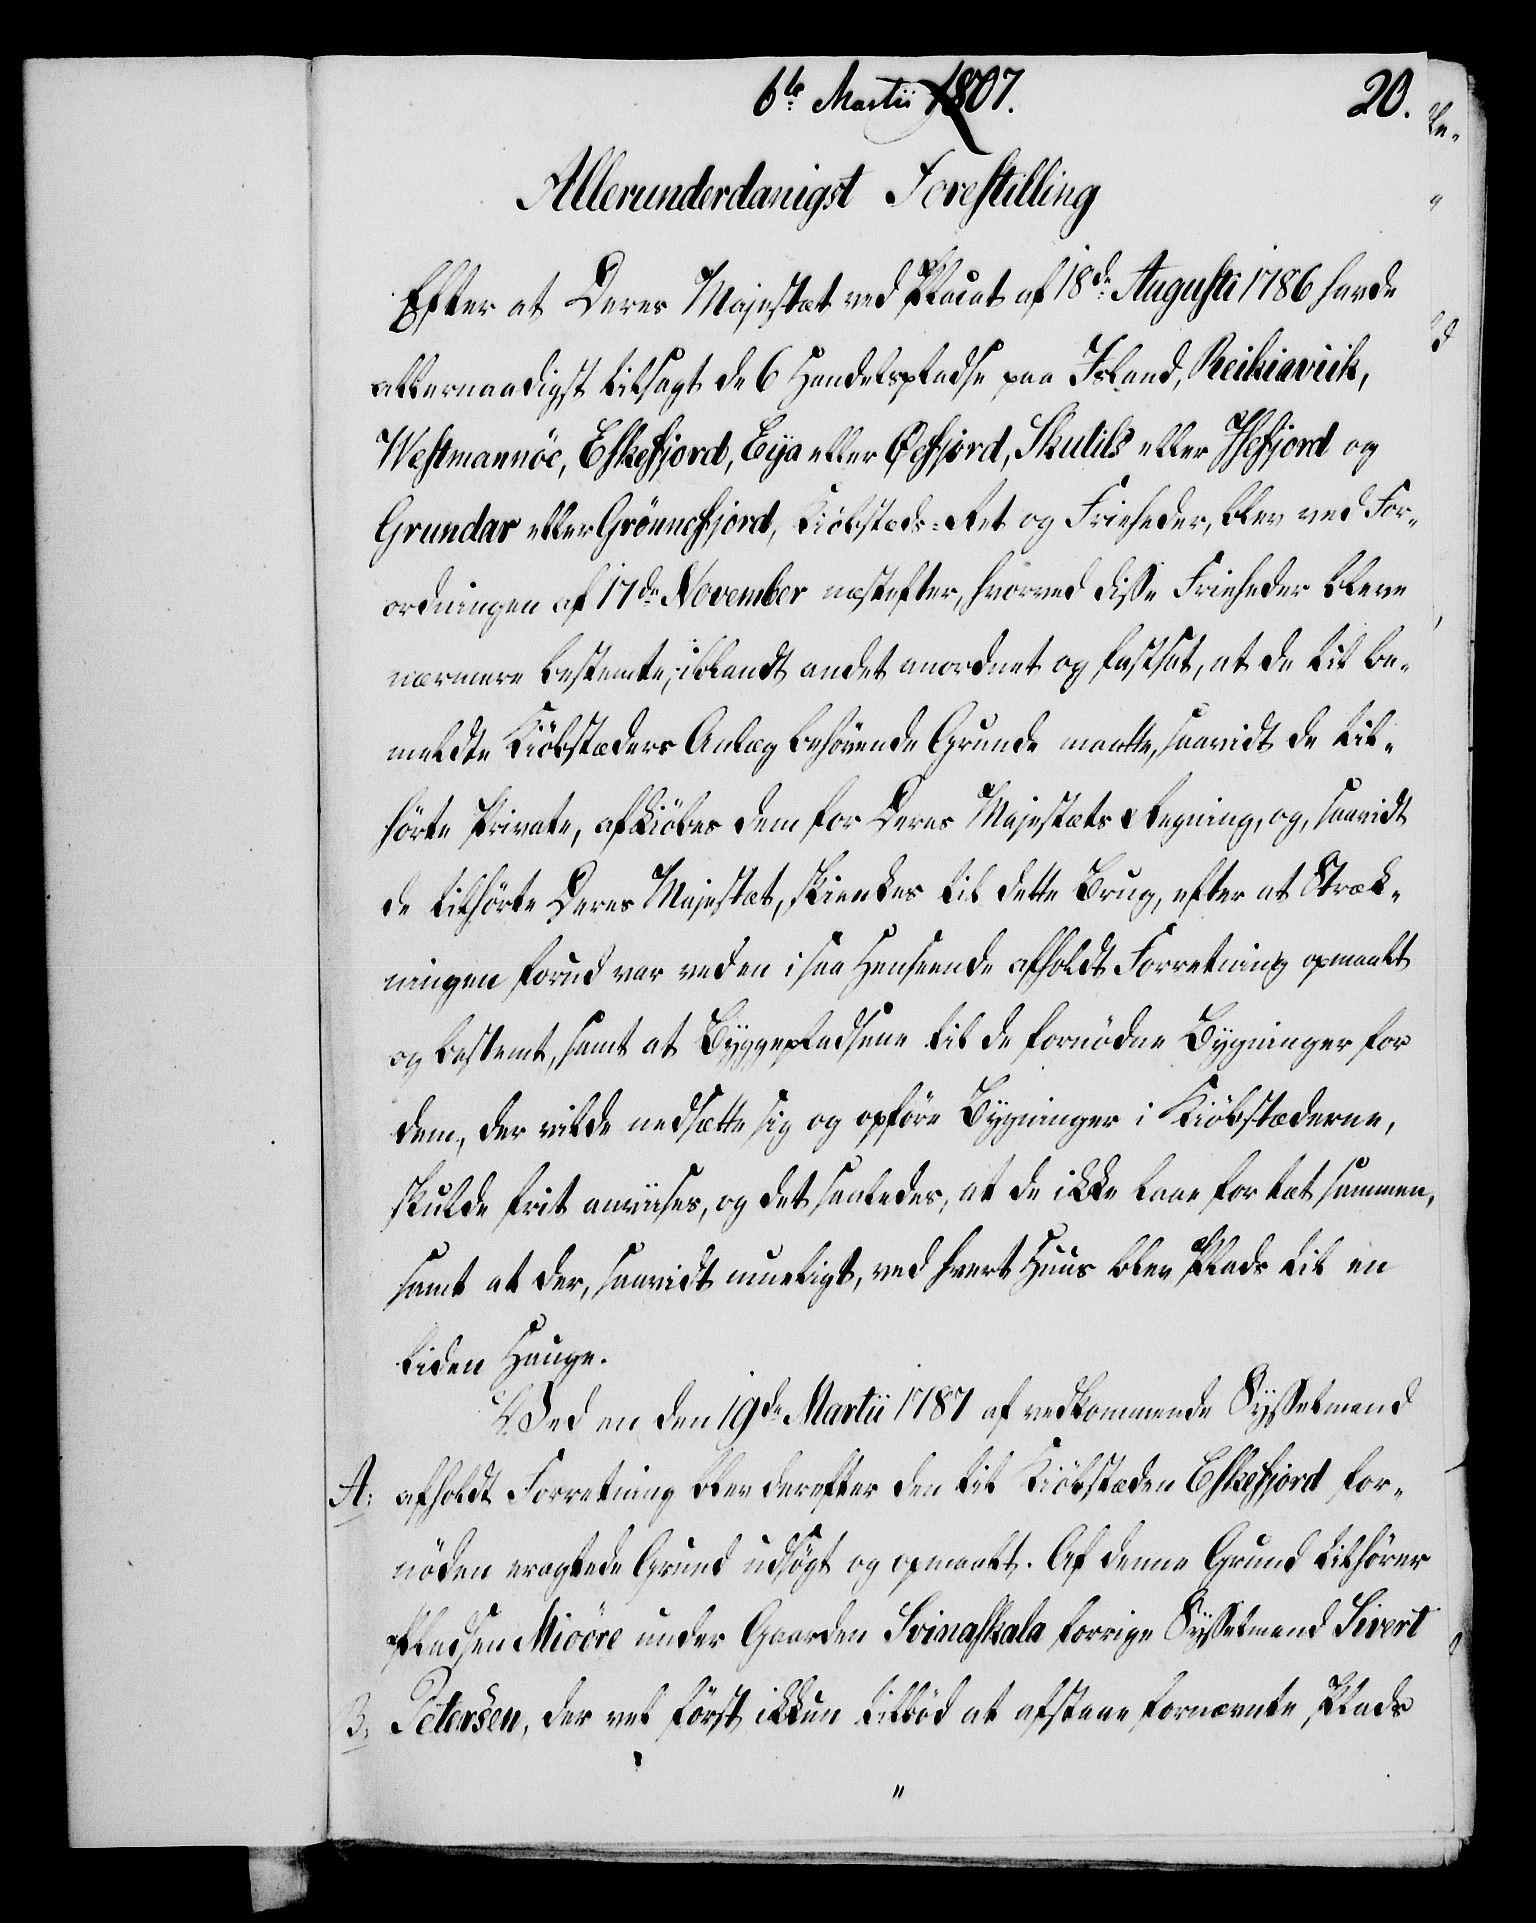 6te Martii 1807.
20.
Allerunderdanigst Forestilling
Efter at Deres Majestæt ved Placat af 18de Augusti 1786 havde
allernaadigst tilsagt de 6 Handelspladse paa Island, Reikiaviik,
Westmannöe, Eskefjord, Eya eller Øefjord, Skutils eller Isefjord og
Grundar eller Grönnefjord, Kiöbstæds-Ret og Friheder, blev ved For-
ordningen af 17de November næstefter, hvorved disse Friheder bleve
nærmere bestemte, iblandt andet anordnet og fastsat, at de til be-
meldte Kiöbstæders Anlæg behövende Grunde maatte, saavidt de til-
hörte Private, afkiöbes dem for Deres Majestæts Regning, og, saavidt
de tilhörte Deres Majestæt, skienkes til dette Brug, efter at Stræk-
ningen forud var ved en i saa Henseende afholdt Forretning opmaalt
og bestemt, samt at Byggepladsene til de fornödne Bygninger for
dem, der vilde nedsætte sig og opföre Bygninger i Kiöbstæderne,
skulde frit anviises, og det saaledes, at de ikke laae for tæt sammen,
samt at der, saavidt mueligt, ved hvert Huus blev Plads til en
liden Hauge.
Ved en den 19de Martii 1787 af vedkommende Sysselmand
A. afholdt Forretning blev derefter den til Kiöbstæden Eskefjord for-
nöden eragtede Grund udsögt og opmaalt. Af denne Grund tilhörer
Pladsen Mioöre under Gaarden Svinaskala forrige Sysselmand Sivert
B. Petersen, der vel först ikkun tilböd at afstaae fornævnte Plads
"